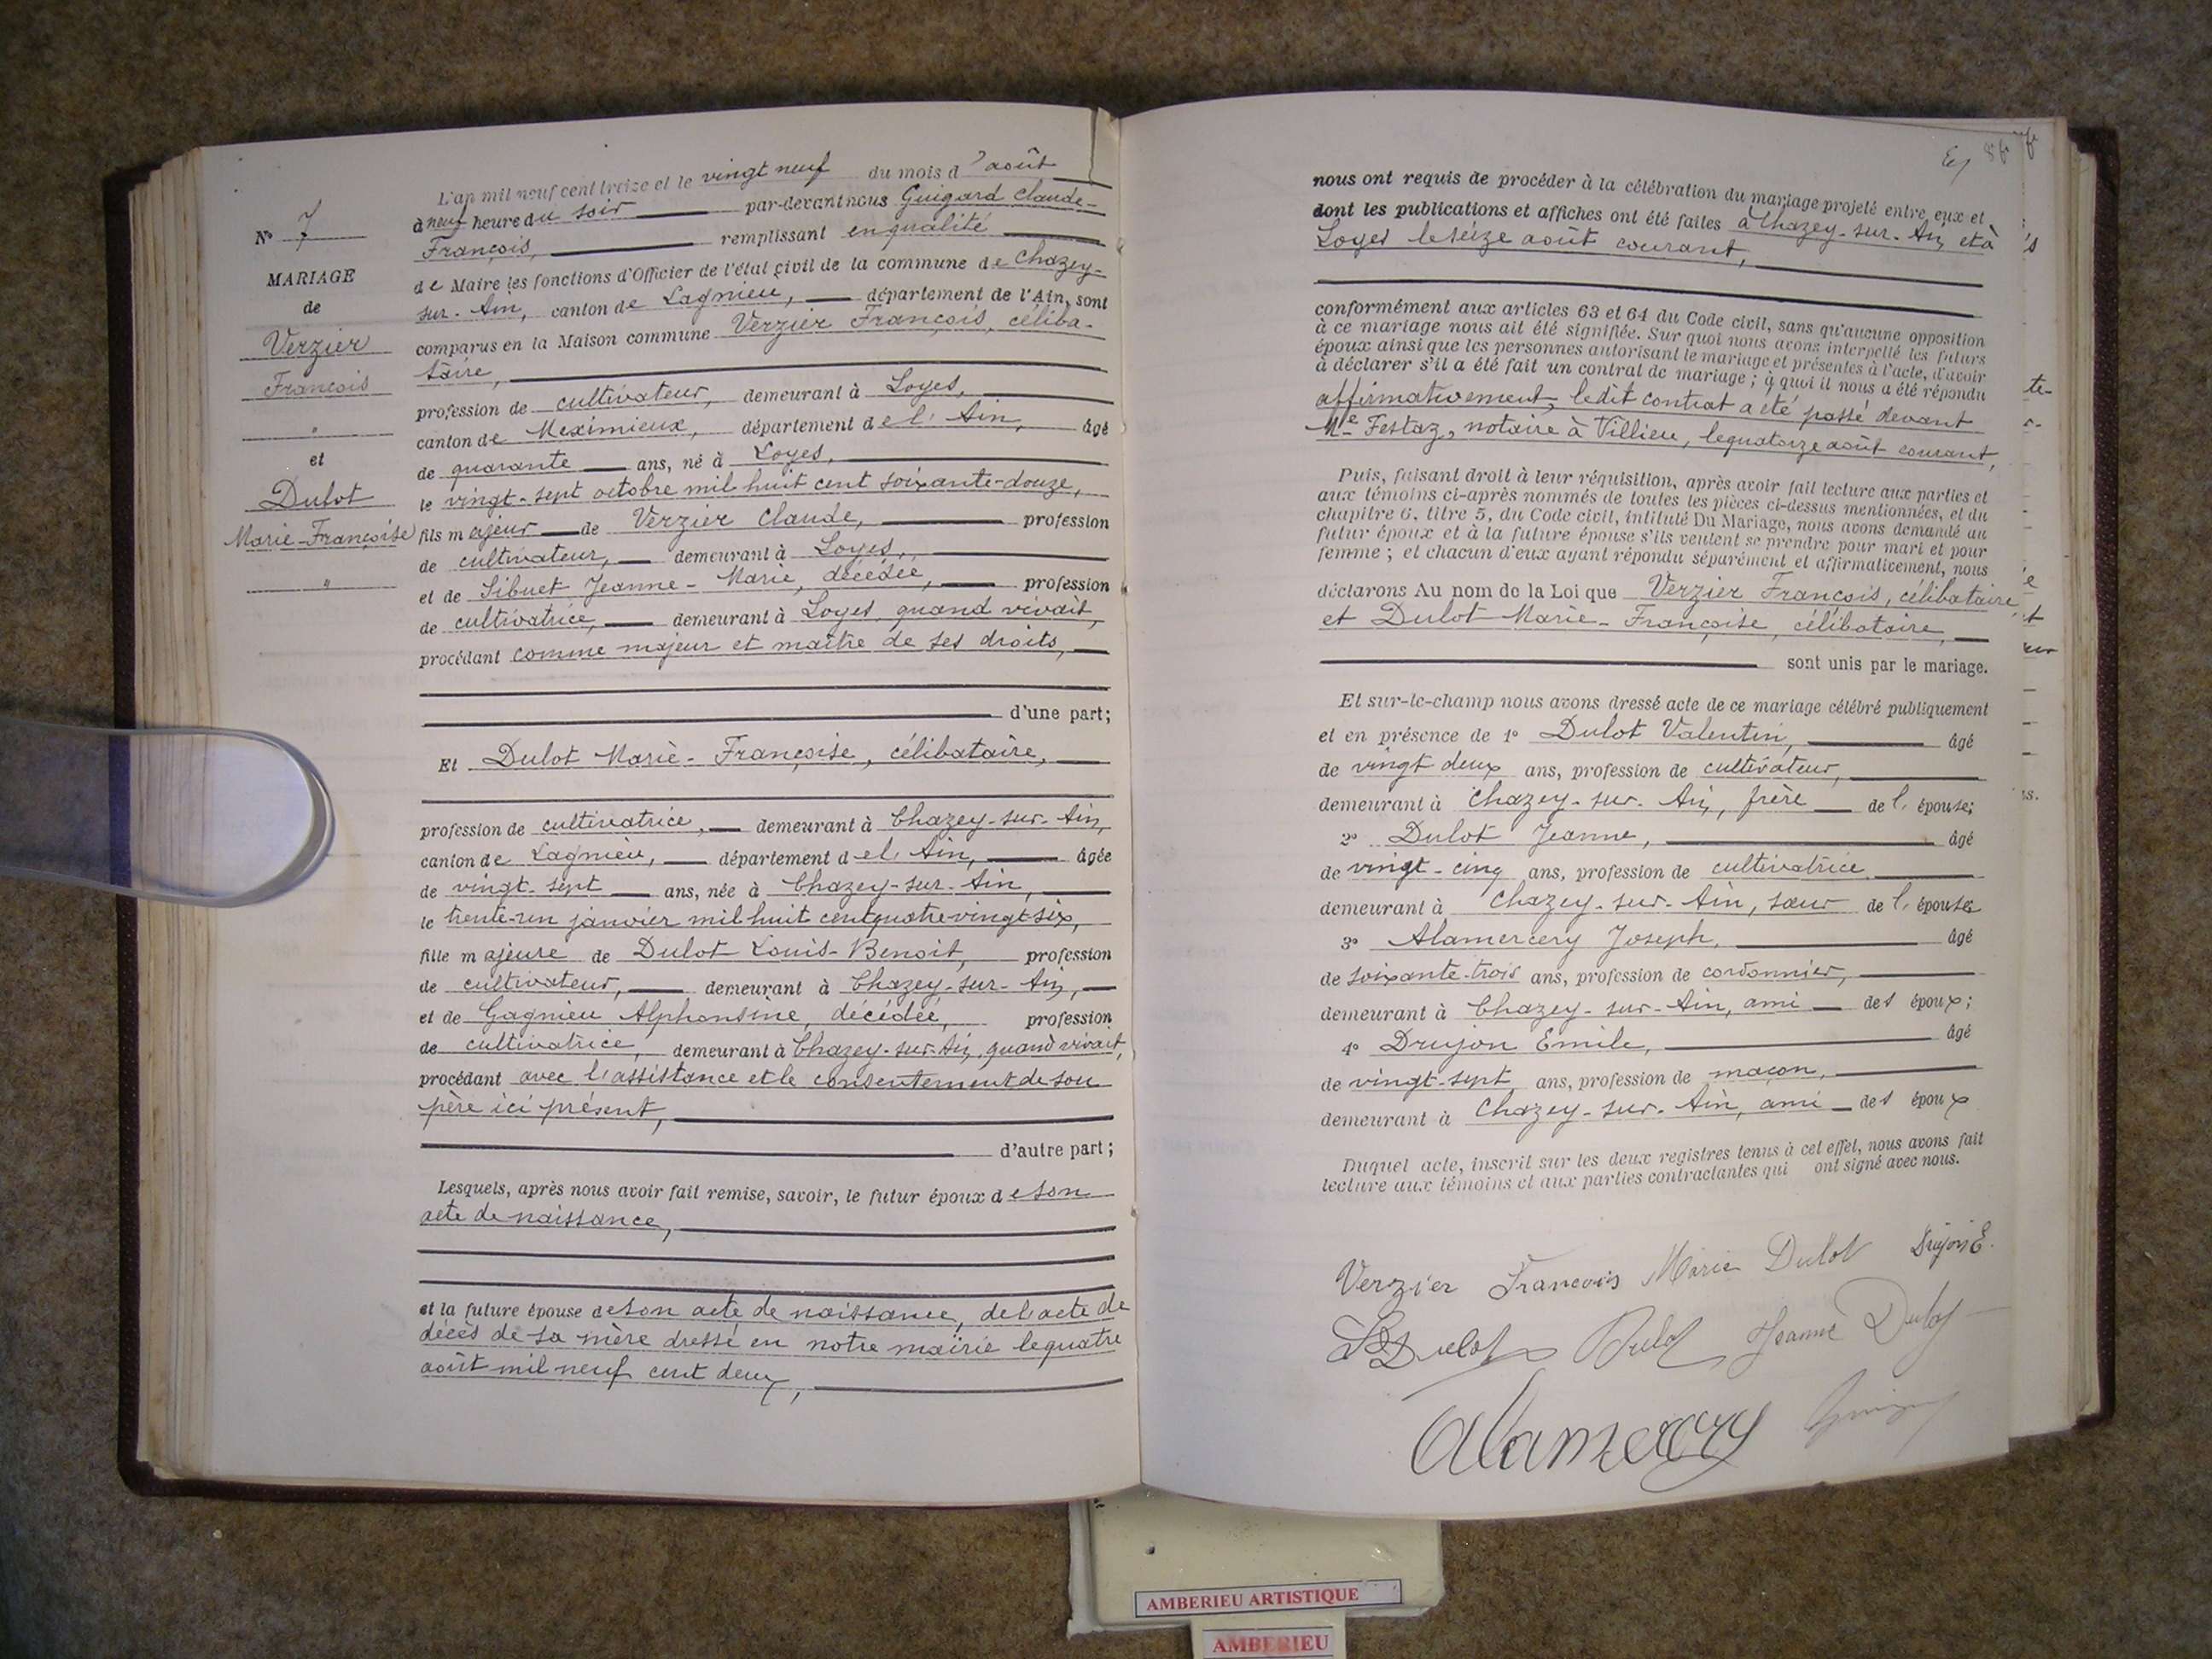 N° 7
MARIAGE
de
Verzier
François
"
et
Dulot
Marie-Françoise
"
L'an mil neuf cent treize et le vingt neuf du mois d'août
à neuf heure du soir par-devant nous Guigard Claude-
François, remplissant en qualité
de Maire les fonctions d'Officier de l'état civil de la commune de Chazey-
sur-Ain, canton de Lagnieu, département de l'Ain, sont
comparus en la Maison commune Verzier François, céliba-
taire,
profession de cultivateur, demeurant à Loyes,
canton de Meximieux, département de l'Ain, âgé
de quarante ans, né à Loyes,
le vingt-sept octobre mil huit cent soixante-douze,
fils majeur de Verzier Claude, profession
de cultivateur, demeurant à Loyes,
et de Sibuet Jeanne-Marie, décédée, profession
de cultivatrice, demeurant à Loyes, quand vivait,
procédant comme majeur et maître de ses droits,
d'une part;
Et Dulot Marie-Françoise, célibataire,
profession de cultivatrice, demeurant à Chazey-sur-Ain,
canton de Lagnieu, département de l'Ain, âgée
de vingt-sept ans, née à Chazey-sur-Ain,
le trente-un janvier mil huit cent quatre vingt-six,
fille majeure de Dulot Louis-Benoit, profession
de cultivateur, demeurant à Chazey-sur-Ain,
et de Gagnieu Alphonsine, décédée, profession
de cultivatrice, demeurant à Chazey-sur-Ain, quand vivait,
procédant avec l'assistance et le consentement de son
père ici présent,
d'autre part;
Lesquels, après nous avoir fait remise, savoir, le futur époux de son
acte de naissance,
et la future épouse de son acte de naissance, de l'acte de
décès de sa mère dressé en notre mairie le quatre
août mil neuf cent deux,
nous ont requis de procéder à la célébration du mariage projeté entre eux et
dont les publications et affiches ont été faites à Chazey-sur-Ain et à
Loyes le seize août courant,
conformément aux articles 63 et 64 du Code civil, sans qu'aucune opposition
à ce mariage nous ait été signifiée. Sur quoi nous avons interpellé les futurs
époux ainsi que les personnes autorisant le mariage et présentes à l'acte, d'avoir
à déclarer s'il a été fait un contrat de mariage; à quoi il nous a été répondu
affirmativement, ledit contrat a été passé devant
Me Festaz, notaire à Villieu, le quatorze août courant,
Puis, faisant droit à leur réquisition, après avoir fait lecture aux parties et
aux témoins ci-après nommés de toutes les pièces ci-dessus mentionnées, et du
chapitre 6, titre 5, du Code civil, intitulé Du Mariage, nous avons demandé au
futur époux et à la future épouse s'ils veulent se prendre pour mari et pour
femme; et chacun d'eux ayant répondu séparément et affirmativement, nous
déclarons Au nom de la Loi que Verzier François, célibataire,
et Dulot Marie-Françoise, célibataire,
sont unis par le mariage.
Et sur-le-champ nous avons dressé acte de ce mariage célébré publiquement
et en présence de 1° Dulot Valentin, âgé
de vingt deux ans, profession de cultivateur,
demeurant à Chazey-sur-Ain, frère de l'épouse;
2° Dulot Jeanne, âgé
de vingt-cinq ans, profession de cultivatrice
demeurant à Chazey-sur-Ain, sœur de l'épouse
3° Alamercery Joseph, âgé
de soixante-trois ans, profession de cordonnier,
demeurant à Chazey-sur-Ain, ami des époux;
4° Drujon Emile, âgé
de vingt-sept ans, profession de maçon,
demeurant à Chazey-sur-Ain, ami des époux
Duquel acte, inscrit sur les deux registres tenus à cet effet, nous avons fait
lecture aux témoins et aux parties contractantes qui ont signé avec nous.
Verzier François Marie Dulot Drujon E.
Dulot Dulot Jeanne Dulot
Alamercery
AMBERIEU ARTISTIQUE
AMBERIEU